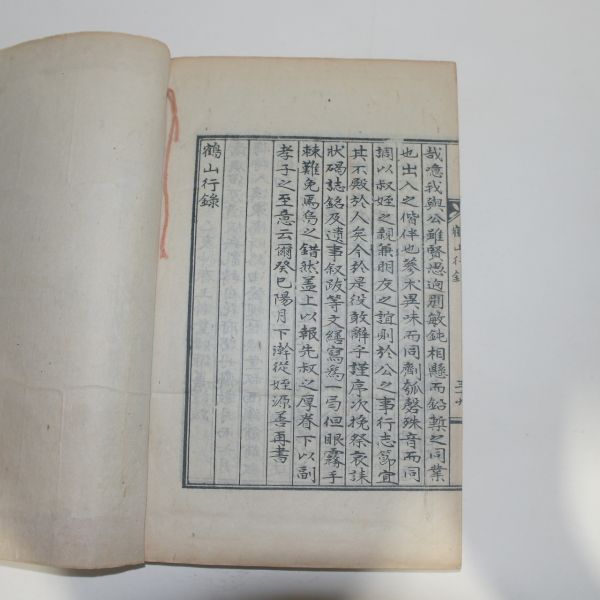 哉噫我與公雖賢愚逈別敏鈍相懸而鉛槧之同業
也出入之偕伴也蔘朮異味而同劑瓠磬殊音而同
調以叔姪之親兼朋友之誼則於公之事行志節宜
其不殿於人矣今於是役敢辭乎謹序次挽祭哀誄
狀碣誌銘及遺事叙跋等文繕寫爲一局但眼霧手
棘難免焉烏之錯然盖上以報先叔之厚眷下以副
孝子之至意云爾癸巳陽月下澣從姪源善再書
鶴山行錄
鶴山行錄